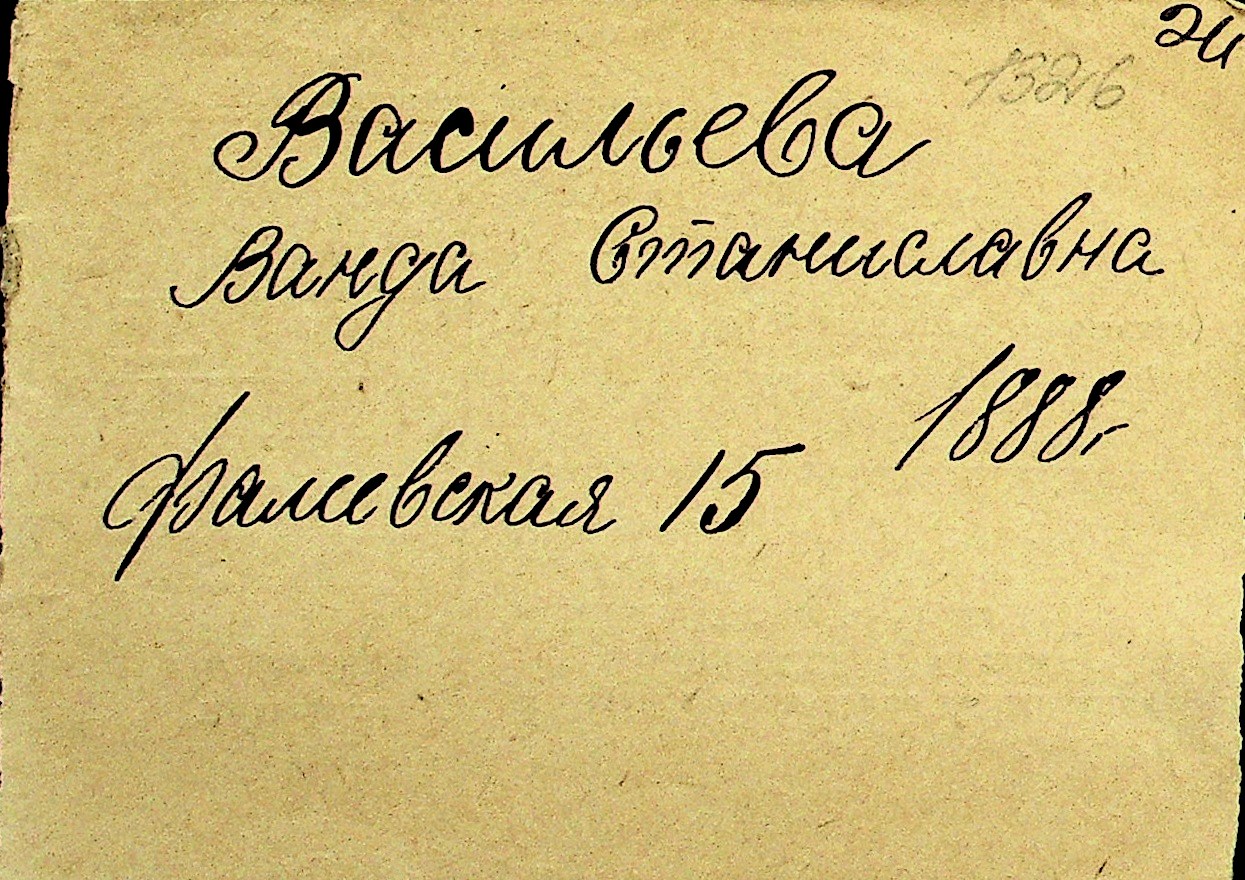 15216
Васильева
Ванда Станиславна
1888г
Фалевская 15